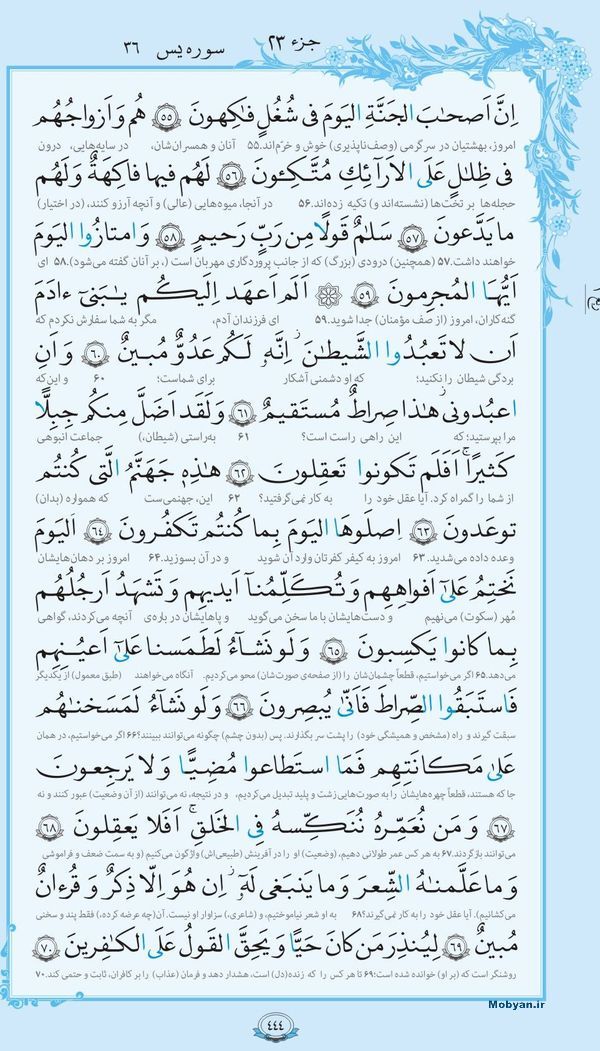 جزء ۲۳
سوره یس ۳۶
اِنَّ اَصحٰبَ الجَنَّةِ اليَومَ فى شُغُلٍ فاكِهونَ ﴿۵۵﴾ هُم وَ اَزواجُهُم
امروز، بهشتیان در سرگرمی (وصف‌ناپذیری) خوش و خرّم‌اند.۵۵ آنان و همسران‌شان، در سایه‌هایی، درون
فى ظِلٰلٍ عَلَى الاَرآئِكِ مُتَّكِـونَ ﴿۵۶﴾ لَهُم فيها فاكِهَةٌ وَ لَهُم
حجله‌ها بر تخت‌ها (نشسته‌اند و) تکیه زده‌اند.۵۶ در آنجا، میوه‌هایی (عالی) و آنچه آرزو کنند، (در اختیار)
ما يَدَّعونَ ﴿۵۷﴾ سَلٰمٌ قَولًا مِن رَبٍّ رَحيمٍ ﴿۵۸﴾ وَ امتازُوا اليَومَ
خواهند داشت.۵۷ (همچنین) درودی (بزرگ) که از جانب پروردگاری مهربان است (، بر آنان گفته می‌شود).۵۸ ای
اَيُّهَا المُجرِمونَ ﴿۵۹﴾ اَلَم اَعهَد اِلَيكُم يٰبَنى ءادَمَ
گنه‌کاران، امروز (از صف مؤمنان) جدا شوید.۵۹ ای فرزندان آدم، مگر به شما سفارش نکردم که
اَن لا تَعبُدُوا الشَّيطٰنَ اِنَّه لَكُم عَدُوٌّ مُبينٌ ﴿۶۰﴾ وَ اَنِ
بردگی شیطان را نکنید؛ که او دشمنی آشکار برای شماست؛ ۶۰ و این‌که
اعبُدونى هٰذا صِراطٌ مُستَقيمٌ ﴿۶۱﴾ وَ لَقَد اَضَلَّ مِنكُم جِبِلًّا
مرا بپرستید؛ که این راهی راست است؟ ۶۱ به‌راستی (شیطان،) جماعت انبوهی
كَثيرًا اَفَلَم تَكونوا تَعقِلونَ ﴿۶۲﴾ هٰذِه جَهَنَّمُ الَّتى كُنتُم
از شما را گمراه کرد. آیا عقل خود را به کار نمی‌گرفتید؟ ۶۲ این، جهنمی‌ست که همواره (بدان)
توعَدونَ ﴿۶۳﴾ اِصلَوهَا اليَومَ بِما كُنتُم تَكفُرونَ ﴿۶۴﴾ اَليَومَ
وعده داده می‌شدید.۶۳ امروز به کیفر کفرتان وارد آن شوید و در آن بسوزید.۶۴ امروز بر دهان‌هایشان
نَختِمُ عَلىٰ اَفواهِهِم وَ تُكَلِّمُنا اَيديهِم وَ تَشهَدُ اَرجُلُهُم
مُهر (سکوت) می‌نهیم و دست‌هایشان با ما سخن می‌گوید و پاهایشان در باره‌ی آنچه می‌کردند، گواهی
بِما كانوا يَكسِبونَ ﴿۶۵﴾ وَ لَو نَشآءُ لَطَمَسنا عَلىٰ اَعيُنِهِم
می‌دهد.۶۵ اگر می‌خواستیم، قطعاً چشمان‌شان را (از صفحه‌ی صورت‌شان) محو می‌کردیم. آنگاه می‌خواهند (طبق معمول) از یکدیگر
فَاستَبَقُوا الصِّراطَ فَاَنّىٰ يُبصِرونَ ﴿۶۶﴾ وَ لَو نَشآءُ لَمَسَخنٰهُم
سبقت گیرند و راه (مشخص و همیشگی خود) را پشت سر بگذارند. پس (بدون چشم) چگونه می‌توانند ببینند؟۶۶ اگر می‌خواستیم، در همان
عَلىٰ مَكانَتِهِم فَمَا استَطاعوا مُضِيًّا وَ لا يَرجِعونَ
جا که هستند، قطعاً چهره‌هایشان را به صورت‌هایی زشت و پلید تبدیل می‌کردیم، و در نتیجه، نه می‌توانند (از آن وضعیت) عبور کنند و نه
﴿۶۷﴾ وَ مَن نُعَمِّرهُ نُنَكِّسهُ فِى الخَلقِ اَفَلا يَعقِلونَ ﴿۶۸﴾
می‌توانند بازگردند.۶۷ به هر کس عمر طولانی دهیم، (وضعیت) او را در آفرینش (طبیعی‌اش) واژگون می‌کنیم (و به سمت ضعف و فراموشی
وَ ما عَلَّمنٰهُ الشِّعرَ وَ ما يَنبَغى لَه اِن هُوَ اِلّا ذِكرٌ وَ قُرءانٌ
می‌کشانیم). آیا عقل خود را به کار نمی‌گیرند؟۶۸ به او شعر نیاموختیم، و (شاعری،) سزاوار او نیست. آن(چه عرضه کرده،) فقط پند و سخنی
مُبينٌ ﴿۶۹﴾ لِيُنذِرَ مَن كانَ حَيًّا وَ يَحِقَّ القَولُ عَلَى الكٰفِرينَ ﴿۷۰﴾
روشنگر است که (بر او) خوانده شده است؛۶۹ تا هر کس را که زنده(دل) است، هشدار دهد و فرمان (عذاب) را بر کافران، ثابت و حتمی کند.۷۰
Mobyan.ir
۴۴۴